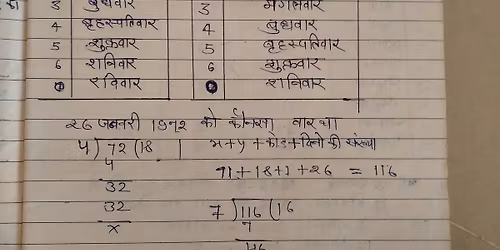 3 बुधवार 3 मंगलवार
4 बृहस्पतिवार 4 बुधवार
5 शुक्रवार 5 बृहस्पतिवार
6 शनिवार 6 शुक्रवार
0 रविवार 0 शनिवार
26 जनवरी 1972 को कौनसा वार था
4) 72 (18 x+y+कोड+दिनो की संख्या
4 71+18+1+26 = 116
32
32 7) 116 (16
x 7
46